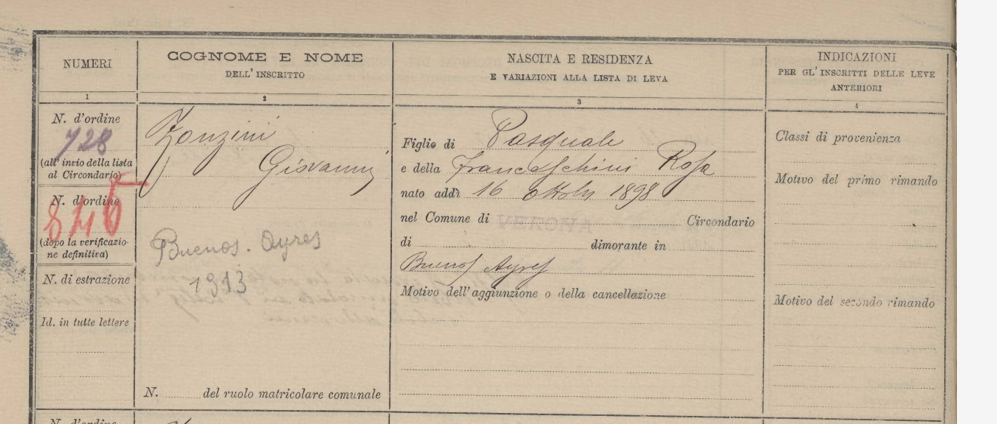 NUMERI
COGNOME E NOME
DELL' INSCRITTO
NASCITA E RESIDENZA
E VARIAZIONI ALLA LISTA DI LEVA
INDICAZIONI
PER GL' INSCRITTI DELLE LEVE
ANTERIORI
1
2
3
4
N. d'ordine
728
(all' invio della lista
al Circondario)
N. d'ordine
846
(dopo la verificazio-
ne definitiva)
N. di estrazione
Id. in tutte lettere
Zonzini
Giovanni
Buenos. Ayres
1913
N. del ruolo matricolare comunale
Figlio di Pasquale
e della Franceschini Rosa
nato addì 16 1898
nel Comune di VERONA Circondario
di dimorante in
Buenos Ayres
Motivo dell'aggiunzione o della cancellazione
Classi di provenienza
Motivo del primo rimando
Motivo del secondo rimando
N. d'ordine